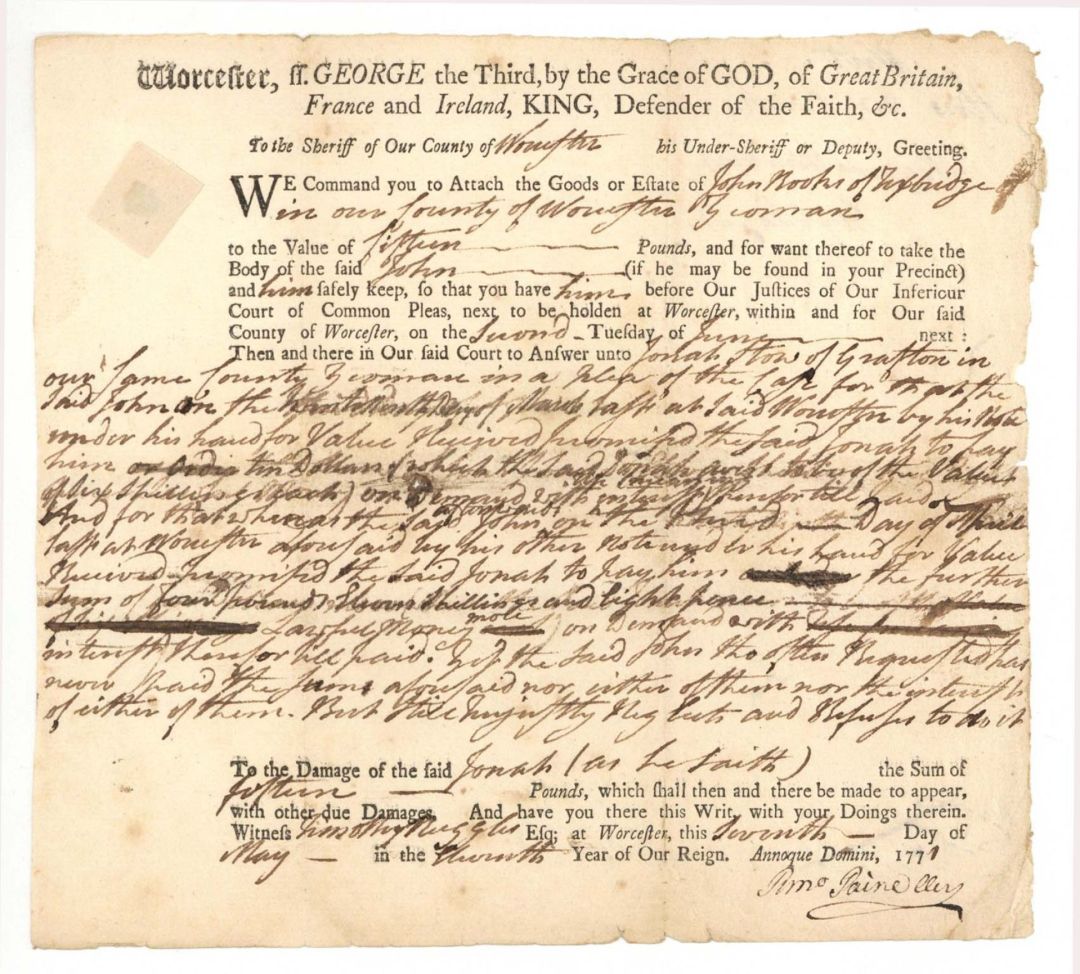 Worcester, ss. GEORGE the Third, by the Grace of GOD, of Great Britain,
France and Ireland, KING, Defender of the Faith, &c.
To the Sheriff of Our County of Worcester his Under-Sheriff or Deputy, Greeting.
WE Command you to Attach the Goods or Estate of John Rooks of Uxbridge
in our County of Worcester Yeoman
to the Value of fifteen Pounds, and for want thereof to take the
Body of the said John (if he may be found in your Precinct)
and him safely keep, so that you have him before Our Justices of Our Inferiour
Court of Common Pleas, next to be holden at Worcester, within and for Our said
County of Worcester, on the Second Tuesday of June next:
Then and there in Our said Court to Answer unto Jonah Stow of Grafton in
our same County Yeoman in a plea of the Case for that the
said John on the Day of March last at said Worcester by his Note
under his hand for Value Received promised the said Jonah to pay
him or order ten Dollars (which the said Jonah to be of the Value
of six shillings each) on Demand with interest therefor till paid
And for that whereas the said John afterwards on the third Day of April
last at Worcester aforesaid by his other Note under his hand for Value
Received promised the said Jonah to pay him the further
sum of four pounds Eleven Shillings and Eight pence
Lawful Money on Demand with
interest therefor till paid. Yet the said John tho often Requested has
never paid the sums aforesaid nor either of them nor the interest
of either of them. But still unjustly Neglects and Refuses to do it
To the Damage of the said Jonah (as he saith) the Sum of
fifteen Pounds, which shall then and there be made to appear,
with other due Damages. And have you there this Writ, with your Doings therein.
Witness Timothy Ruggles Esq; at Worcester, this Seventh Day of
May in the Eleventh Year of Our Reign. Annoque Domini, 1771
Timo Paine Cler